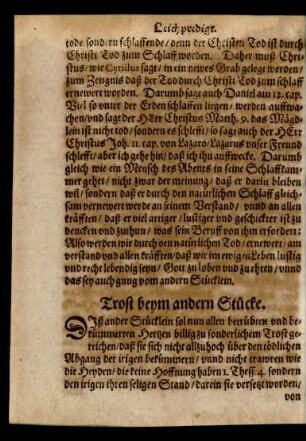 Leichpredigt.
tode sondern schlaffende / denn der Christen Tod ist durch
Christi Tod zum Schlaff worden. Daher muß Chri-
stus / wie Cyrillus sagt / in ein newes Grab gelegt werden /
zum Zeugnis daß der Tod durch Christi Tod zum schlaff
ernewert worden. Darumb sagt auch Daniel am 12. cap.
Viel so unter der Erden schlaffen liegen / werden auffwa-
chen / vnd sagt der HErr Christus Matth. 9. das Mägd-
lein ist nicht tod / sondern es schlefft / so sagt auch der HErr
Christus Joh. 11. cap. von Lazaro / Lazarus vnser Freund
schlefft / aber ich gehe hin / daß ich ihn auffwecke. Darumb
gleich wie ein Mensch des Abents in seine Schlaffkam-
mer gehet / nicht zwar der meinung / daß er darin bleiben
wil / sondern daß er durch den natürlichen Schlaff gleich-
sam vernewert werde an seinem Verstand / vnnd an allen
kräfften / daß er viel artiger / lustiger vnd geschickter ist zu
dencken vnd zuthun / was sein Beruff von ihm erfordert:
Also werden wir durch den natürlichen Tod / ernewert / am
verstand vnd allen kräfften / daß wir im ewigen Leben lustig
vnd recht lebendig seyn / Gott zu loben vnd zu ehren / vnnd
das sey auch gnug vom andern Stücklein.
Trost beym andern Stücke.
DIß ander Stücklein sol nun allen betrübten vnd be-
kümmerten Hertzen billig zu sonderlichem Trost ge-
reichen / daß sie sich nicht allzuhoch über den tödlichen
Abgang der irigen bekümmern / vnnd nicht trawren wie
die Heyden / die keine Hoffnung haben 1. Thess. 4. sondern
den irigen ihren seligen Stand / darein sie versetzt worden /
von